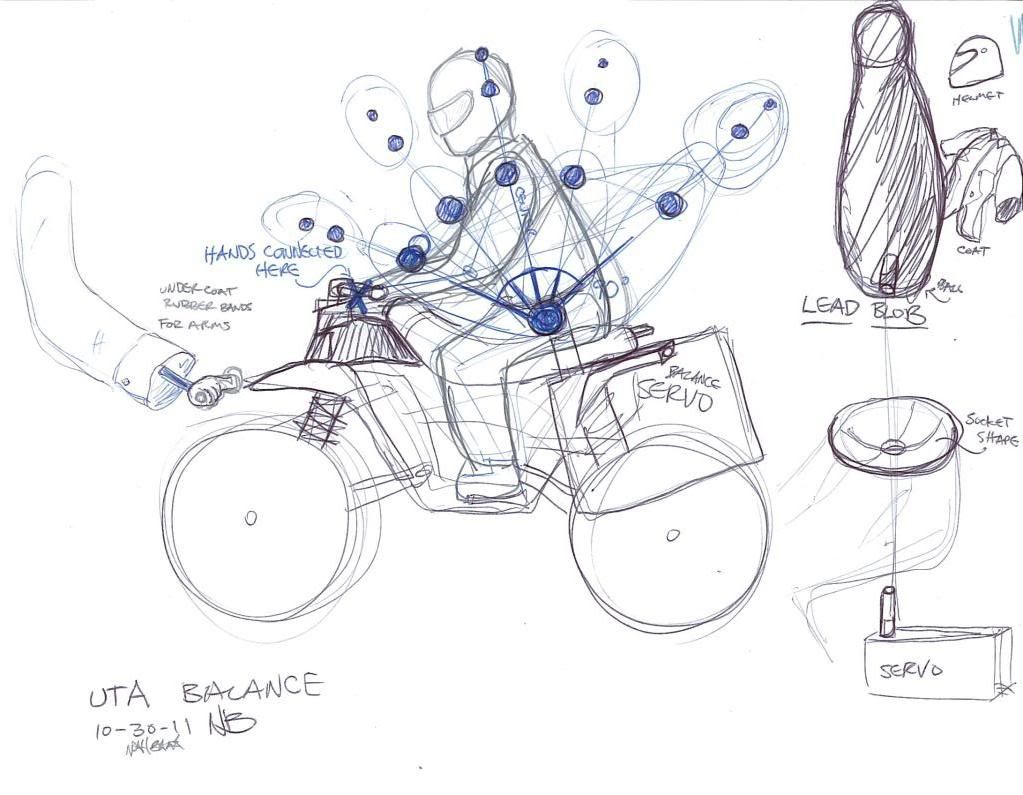 HELMET
COAT
HANDS CONNECTED
HERE
UNDER COAT
RUBBER BANDS
FOR ARMS
90°
BALL
LEAD BLOB
BALANCE
SERVO
SOCKET
SHAPE
SERVO
UTA BALANCE
10-30-11 NB